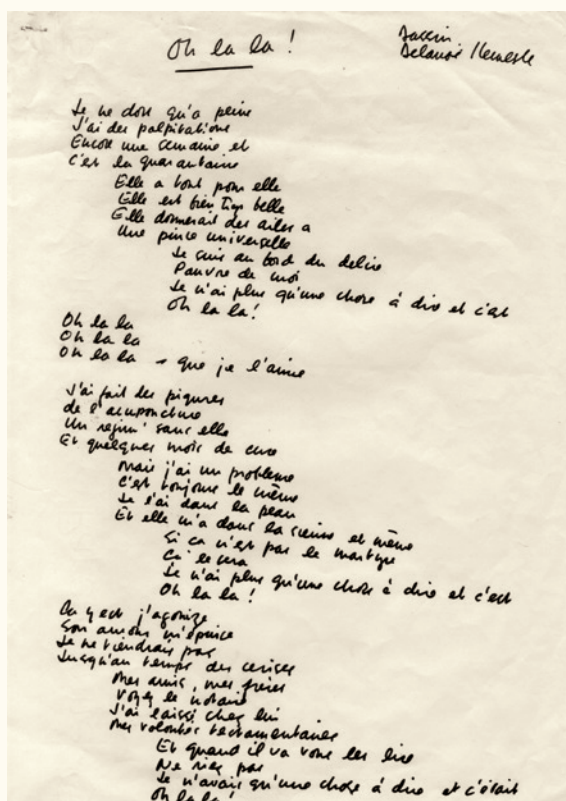 Oh la la !
Dassin
Delanoë Lemesle
Je ne dors qu'a peine
J'ai des palpitations
Encore une semaine et
C'est la quarantaine
Elle a tout pour elle
Elle est bien trop belle
Elle donnerait des ailes a
Une pince universelle
Je suis au bord du delire
Pauvre de moi
Je n'ai plus qu'une chose à dire et c'est
Oh la la !
Oh la la
Oh la la
Oh la la - que je l'aime
J'ai fait des piqures
de l'acuponcture
Un regim' sans elle
Et quelques mois de cure
Mais j'ai un probleme
C'est toujours le même
Je l'ai dans la peau
Et elle m'a dans la sienne et même
Si ca n'est pas le martyre
Ca le sera
Je n'ai plus qu'une chose à dire et c'est
Oh la la !
Ca y est j'agonize
Son amour m'épuise
Je ne tiendrais pas
Jusqu'au temps des cerises
Mes amis, mes frères
Voyez le notaire
J'ai laissé chez lui
Mes volontés testamentaires
Et quand il va vous les lire
Ne riez pas
Je n'avais qu'une chose à dire et c'était
Oh la la !